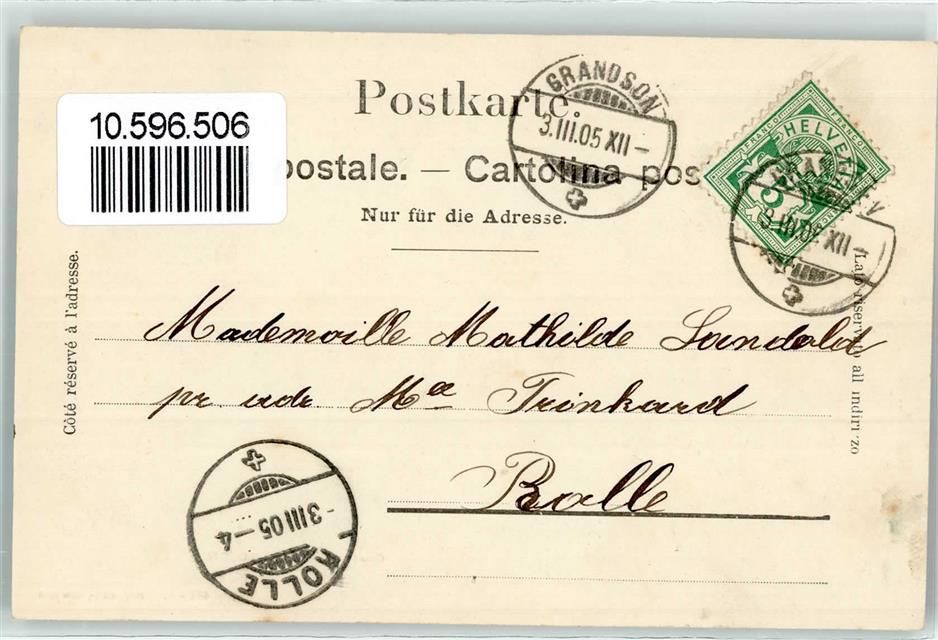 Postkarte.
10.596.506
postale. — Cartolina pos
Nur für die Adresse.
GRANDSON
3.III.05 XII –
FRANCO FRANCO
HELVETIA
5
3.III.05 XII –
Côté réservé à l'adresse.
Lato riservato all indirizzo
Mademoiselle Mathilde Sandold
pr adr. Mme Trinkard
Rolle
- 3 III 05 – 4
ROLLE